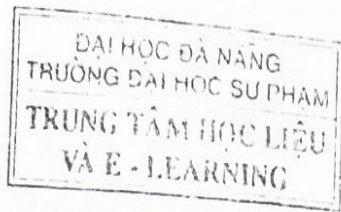 ĐẠI HỌC ĐÀ NẴNG
TRƯỜNG ĐẠI HỌC SƯ PHẠM
TRUNG TÂM HỌC LIỆU
VÀ E - LEARNING